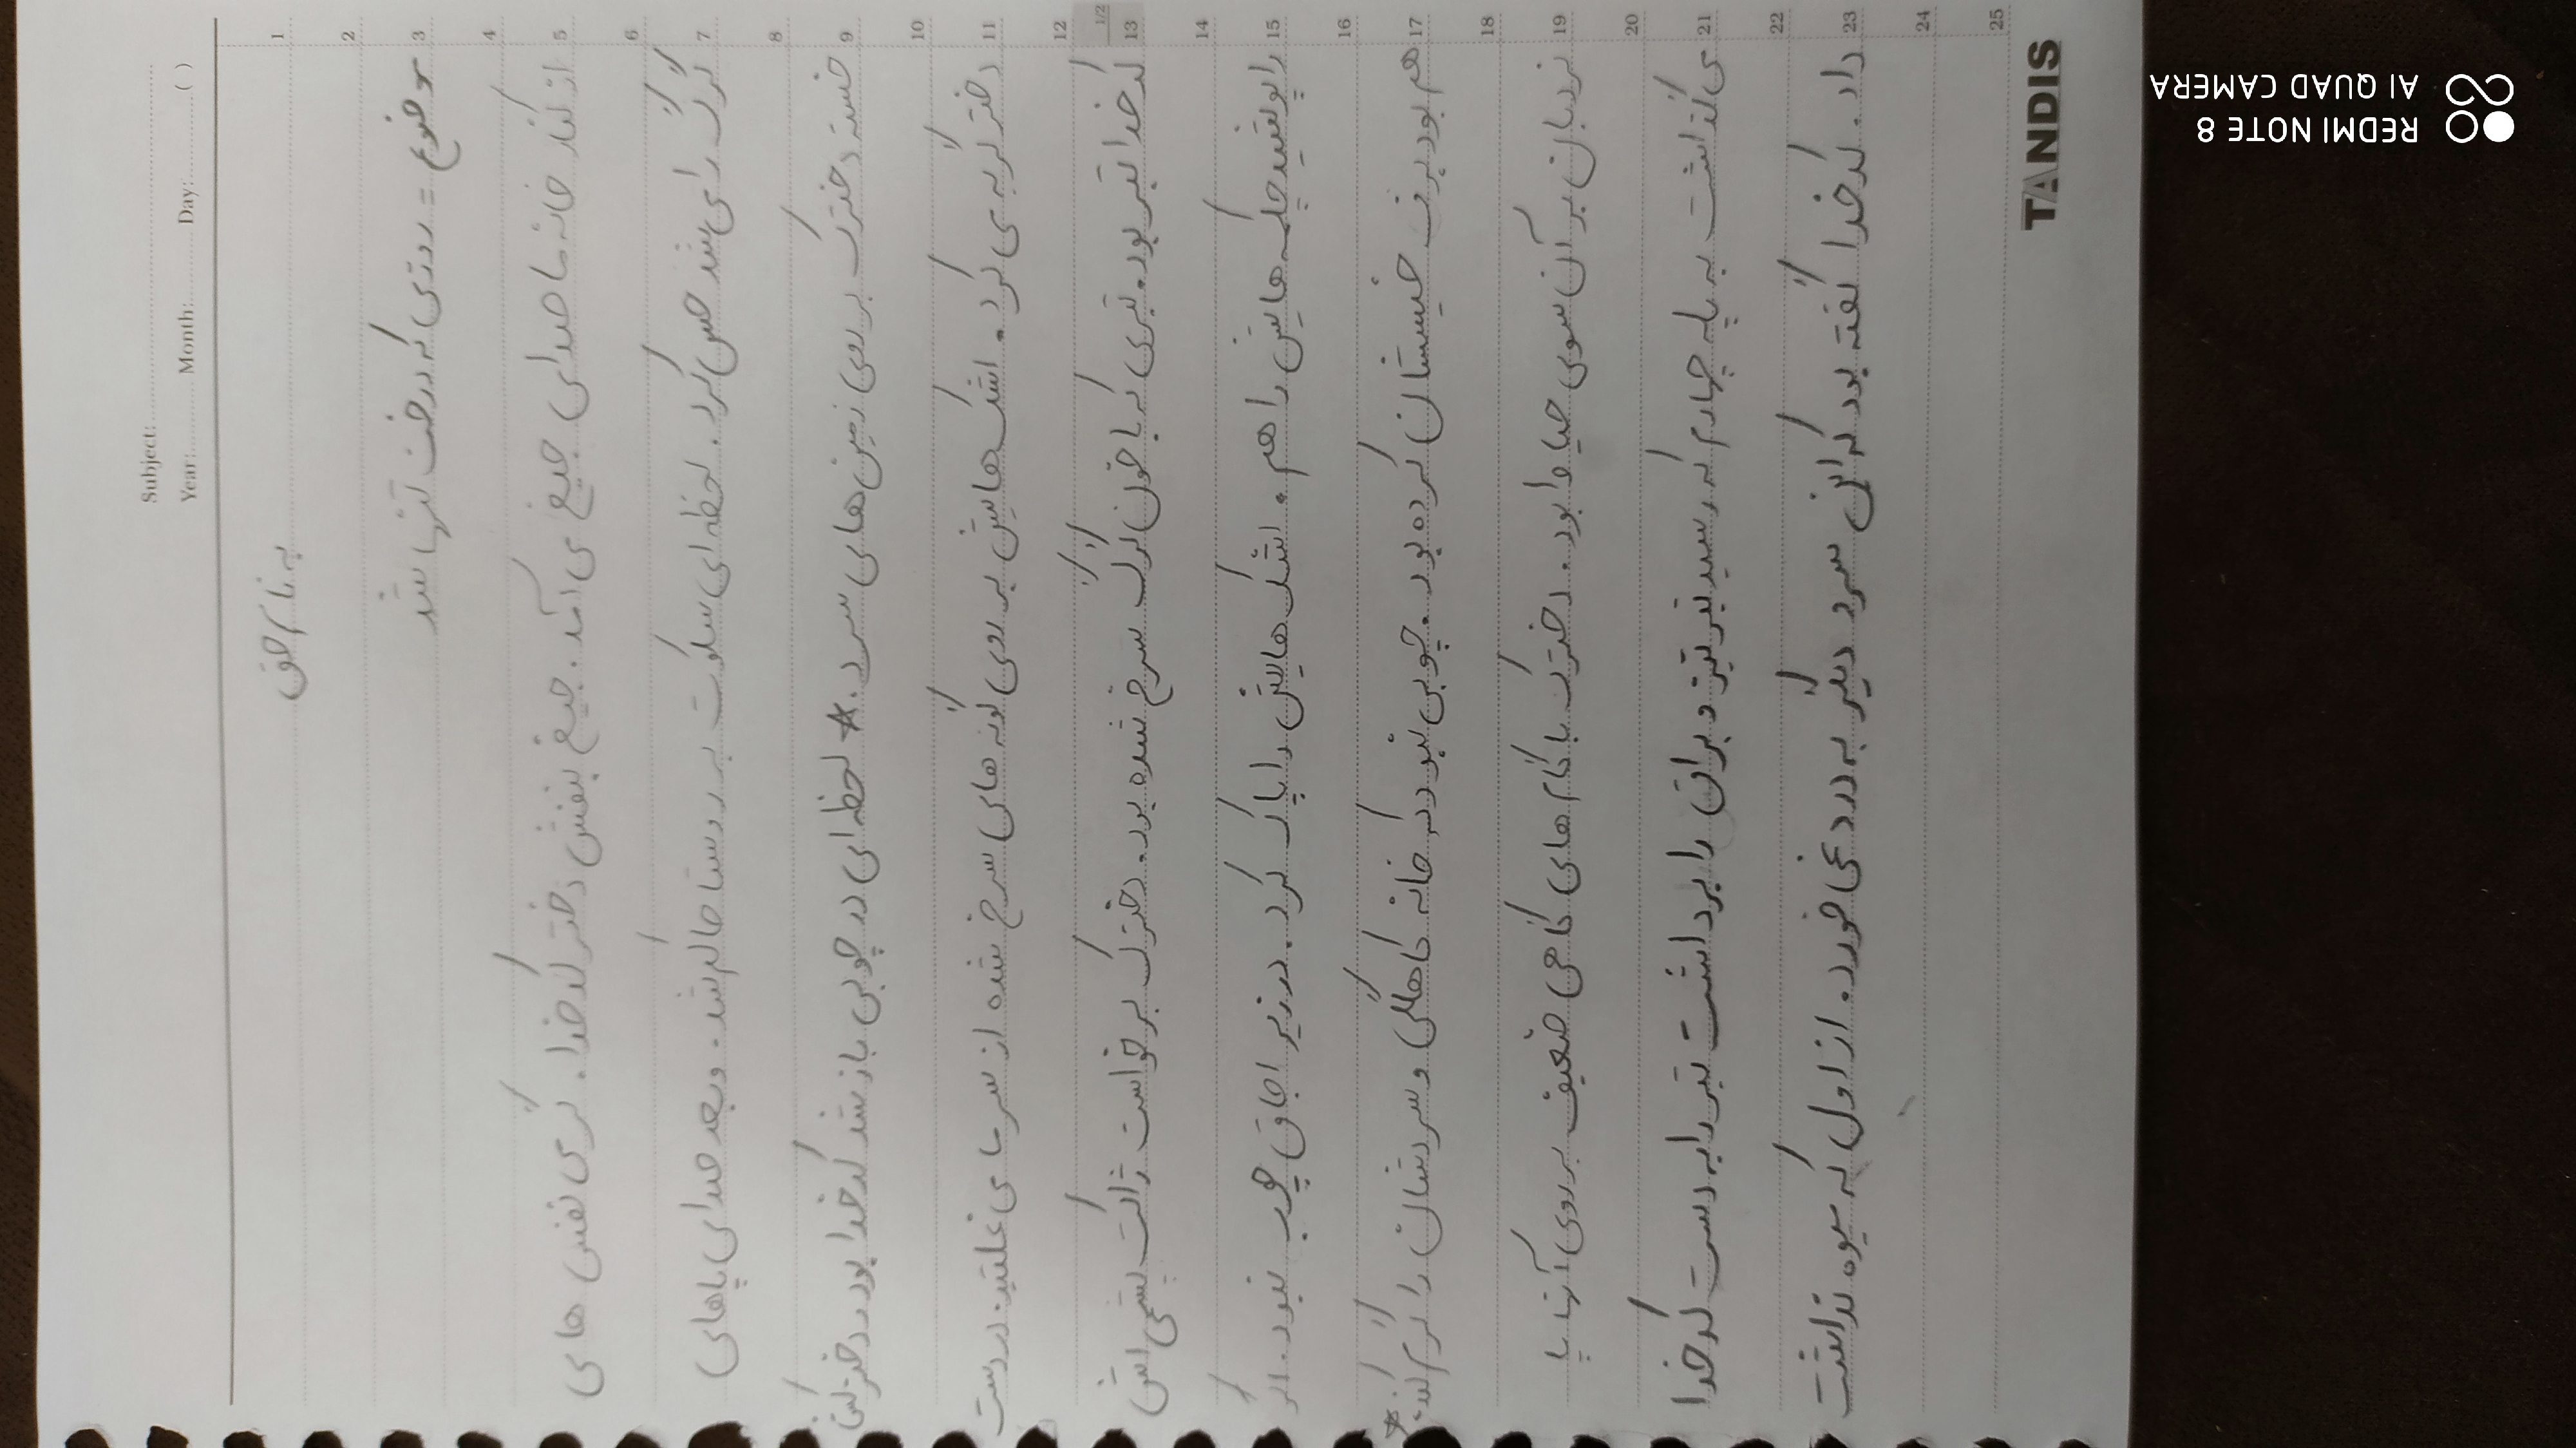 Subject:
Year: Month: Day: ( )
به نام حق
موضوع = روزی که درخت تنها شد
از کنار خانه ما صدای جیغ می آمد. جیغ بنفش دختر کدخدا. گرمی نفس های
گرگ را می شد حس کرد. لحظه ای سکوت بر روستا حاکم شد. و بعد صدای پاهای
خسته دخترک بر روی زمین های سرد. * لحظه ای در چوبی باز شد کدخدا بود و دخترش
دختر گریه می کرد. اشک هایش بر روی گونه های سرخ شده از سرما می غلتید. در دست
کدخدا تبر بود. تبری که با خون گرگ سرخ شده بود. دخترک برخواست ژاکت پشمی اش
را پوشید چکمه هایش را هم. اشک هایش را پاک کرد. در زیر اجاق چوب نبود. اگر
هم بود برف خیسشان کرده بود. چوبی نبود که خانه کاهگلی و سردشان را گرم کند *
نردبان بر آن سوی حیاط بود. دخترک با گام های گاهی ضعیف بر روی آنها پا
می گذاشت به پله چهارم که رسید تبر تیز و براق را برداشت تبر را به دست کدخدا
داد. کدخدا گفته بود که این سرد دیگر به درد نمی خورد. از اول که میوه نداشت
1
2
3
4
5
6
7
8
9
10
11
12
1/2
13
14
15
16
17
18
19
20
21
22
23
24
25
TANDIS
REDMI NOTE 8
AI QUAD CAMERA